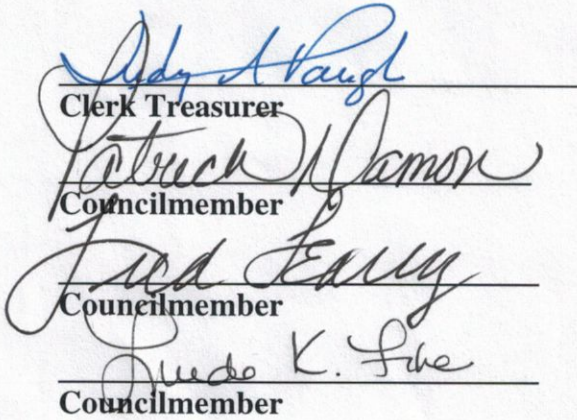 Judy A Paugh
Clerk Treasurer
Patrick Damon
Councilmember
Fred
Councilmember
K.
Councilmember